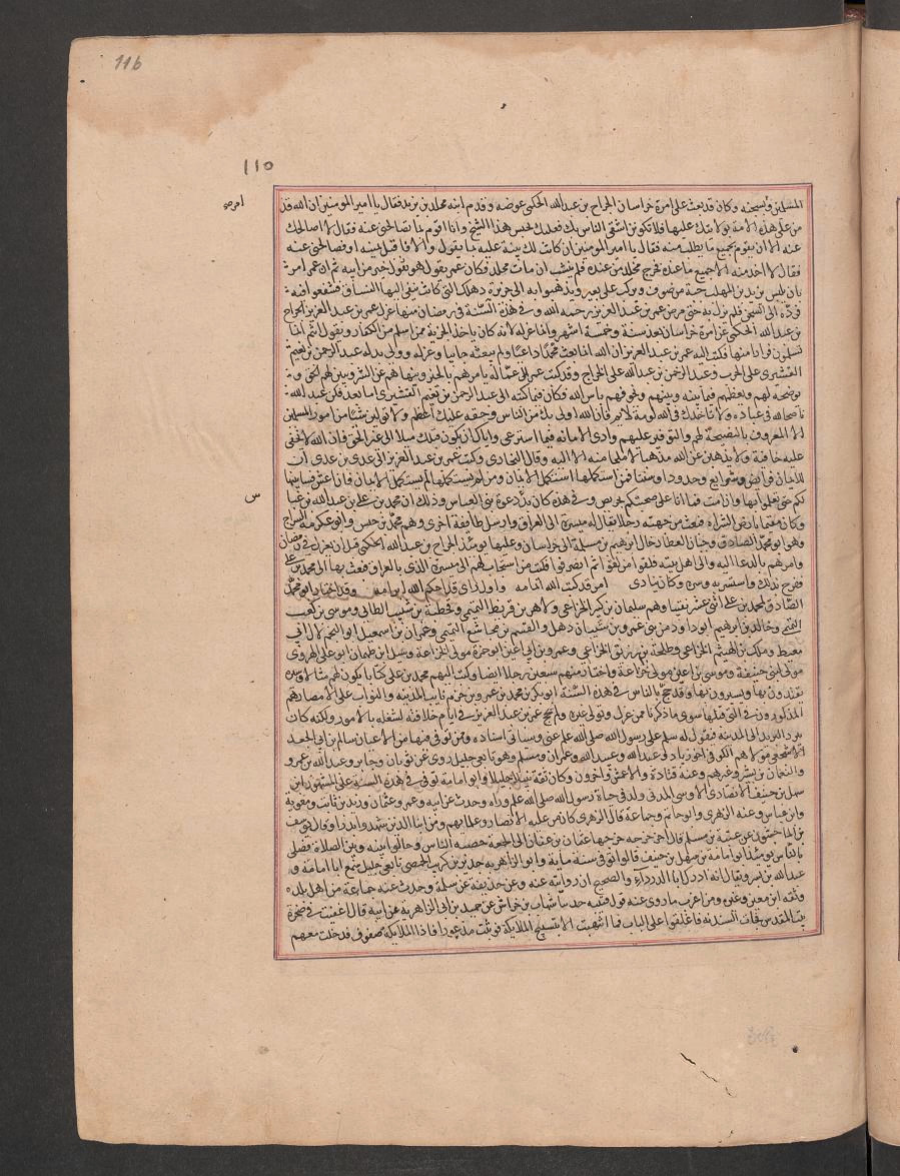 116
110
المسلمين وسجنه وكان قد بعث على امرة خراسان الجراح بن عبد الله الحكمى عوضه وقدم ابنه مخلد بن يزيد فقال يا امير المومنين ان الله قد
من على هذه الامة بولايتك عليها فلا نكونن اشقى الناس بك فعلام تحبس هذا الشيخ وانا اقوم بما تصالحنى عنه فقال لا اصالحك
عنه الا ان تقوم بجميع ما يطلب منه فقال يا امير المومنين ان كانت لك بينة عليه بما يقول والا فاقبل يمينه او فصالحنى عنه
فقال لا اخذ منه الا جميع ما عنده فخرج مخلد من عنده فلم ينشب ان مات مخلد وكان عمر يقول هو خير من ابيه ثم ان عمر امر
بان يلبس يزيد بن المهلب جبة من صوف ويركب على بعير ويذهبوا به الى جزيرة دهلك التى كانت ينفى اليها الفساق فشفعوا فيه
فرده الى السجن فلم يزل به حتى مرض عمر بن عبد العزيز رحمه الله وفى هذه السنة فى رمضان منها عزل عمر بن عبد العزيز الجراح
بن عبد الله الحكمى عن امرة خراسان بعد سنة وخمسة اشهر وانما عزله لانه كان ياخذ الجزية ممن اسلم من الكفار ويقول انتم انما
تسلمون فرارا منها فكتب اليه عمر بن عبد العزيز ان الله انما بعث محمدا داعيا ولم يبعثه جابيا وعزله وولى بدله عبد الرحمن بن نعيم
القشيرى على الحرب وعبد الرحمن بن عبد الله على الخراج وقد كتب عمر الى عماله يامرهم بالخير وينهاهم عن الشر ويبين لهم الحق و
يوضحه لهم ويعظهم فيما بينه وبينهم ويخوفهم باس الله فكان فيما كتبه الى عبد الرحمن بن نعيم القشيرى اما بعد فكن عبد الله
ناصحا لله فى عباده ولا تاخذك فى الله لومة لايم فان الله اولى بك من الناس وحقه عليك اعظم ولا تولين شيئا من امور المسلمين
الا المعروف بالنصيحة لهم والتوفير عليهم وادى الامانة فيما استرعى واياك ان يكون ميلك ميلا الى غير الحق فان الله لا تخفى
عليه خافية ولا تذهبن عن الله مذهبا لا ملجا منه الا اليه وقال البخارى وكتب عمر بن عبد العزيز الى عدى بن عدى ان
للايمان فرايض وشرايع وحدودا وسننا فمن استكملها استكمل الايمان ومن لم يستكملها لم يستكمل الايمان فان اعش فسابينها
لكم حتى تعملوا بها وان امت فما انا على صحبتكم بحريص وفى هذه كان بدو دعوة بنى العباس وذلك ان محمد بن على بن عبد الله بن عباس
وكان مقيما بارض الشراة فبعث من جهته رجلا يقال له ميسرة الى العراق وارسل طايفة اخرى وهم محمد بن خنيس وابو عكرمة السراج
وهو ابو محمد الصادق وحيان العطار خال ابرهيم بن مسلمة الى خراسان وعليها يومئذ الجراح بن عبد الله الحكمى قبل ان يعزل فى رمضان
وامرهم بالدعاء اليه والى اهل بيته فلقوا من لقوا ثم انصرفوا بكتب من استجاب لهم الى ميسرة الذى بالعراق فبعث بها الى محمد بن على
ففرح بذلك واستبشر به وسره وكان مبادى امر قد كتب الله اتمامه
الصادق لمحمد بن على اثنى عشر نقيبا وهم سليمان بن كثير الخزاعى ولاهز بن قريظ التميمى وقحطبة بن شبيب الطائى وموسى بن كعب
التميمى وخالد بن ابرهيم ابو داود من بنى عمرو بن شيبان بن ذهل والقسم بن مجاشع التميمى وعمران بن اسمعيل ابو النجم مولى لال ابى
معيط ومالك بن الهيثم الخزاعى وطلحة بن رزيق الخزاعى وعمرو بن اعين ابو حمزة مولى لخزاعة وشبل بن طهمان ابو على الهروى
مولى لبنى حنيفة وموسى بن اعين مولى لخزاعة واختار منهم سبعين رجلا ايضا وكتب اليهم محمد بن على كتابا يكون لهم مثالا وسيرة
يقتدون بها ويسيرون بها وقد حج بالناس فى هذه السنة ابو بكر بن محمد بن عمرو بن حزم نايب المدينة والنواب على الامصار هم
المذكورون فى التى قبلها سوى ما ذكرنا ممن عزل وتولى غيره ولم يحج عمر بن عبد العزيز فى ايام خلافته لشغله بالامور ولكنه كان
يبرد البريد الى المدينة فيقول له سلم على رسول الله صلى الله عليه وسلم عنى وسياتى اسناده وممن توفى فيها من الاعيان سالم بن ابى الجعد
الاشجعى مولاهم الكوفى اخو زياد وعبد الله وعبيد الله وعمران ومسلم وهو تابعى جليل روى عن ثوبان وجابر وعبد الله بن عمرو
والنعمان بن بشير وغيرهم وعنه قتادة والاعمش واخرون وكان ثقة نبيلا جليلا وابو امامة توفى فى هذه السنة على المشهور ابن
سهل بن حنيف الانصارى الاوسى المدنى ولد فى حياة رسول الله صلى الله عليه وسلم وراه وحدث عن ابيه وعمر وعثمان وزيد بن ثابت ومعوية
وابن عباس وعنه الزهرى وابو حازم وجماعة قال الزهرى كان من علية الانصار وعلمايهم ومن ابناء الذين شهدوا بدرا وقال يوسف
بن الماجشون عن عتبة بن مسلم قال اخر خرجة خرجها عثمان بن عفان الى الجمعة حصبه الناس وحالوا بينه وبين الصلاة فصلى
بالناس يومئذ ابو امامة بن سهل بن حنيف قالوا توفى سنة ماية وابو الزاهرية حدير بن كريب الحمصى تابعى جليل سمع ابا امامة و
عبد الله بن بسر ويقال انه ادرك ابا الدرداء والصحيح ان روايته عنه وعن حذيفة مرسلة وحدث عنه جماعة من اهل بلده
وثقه ابن معين وغيره ومن اغرب ما روى عنه قول قتيبة حدثنا شهاب بن خراش عن حميد بن ابى الزاهرية عن ابيه قال اغفيت فى صخرة
بيت المقدس فجات السدنة فاغلقوا على الباب فما انتبهت الا بتسبيح الملايكة فوثبت مذعورا فاذا الملايكة صفوف فدخلت معهم